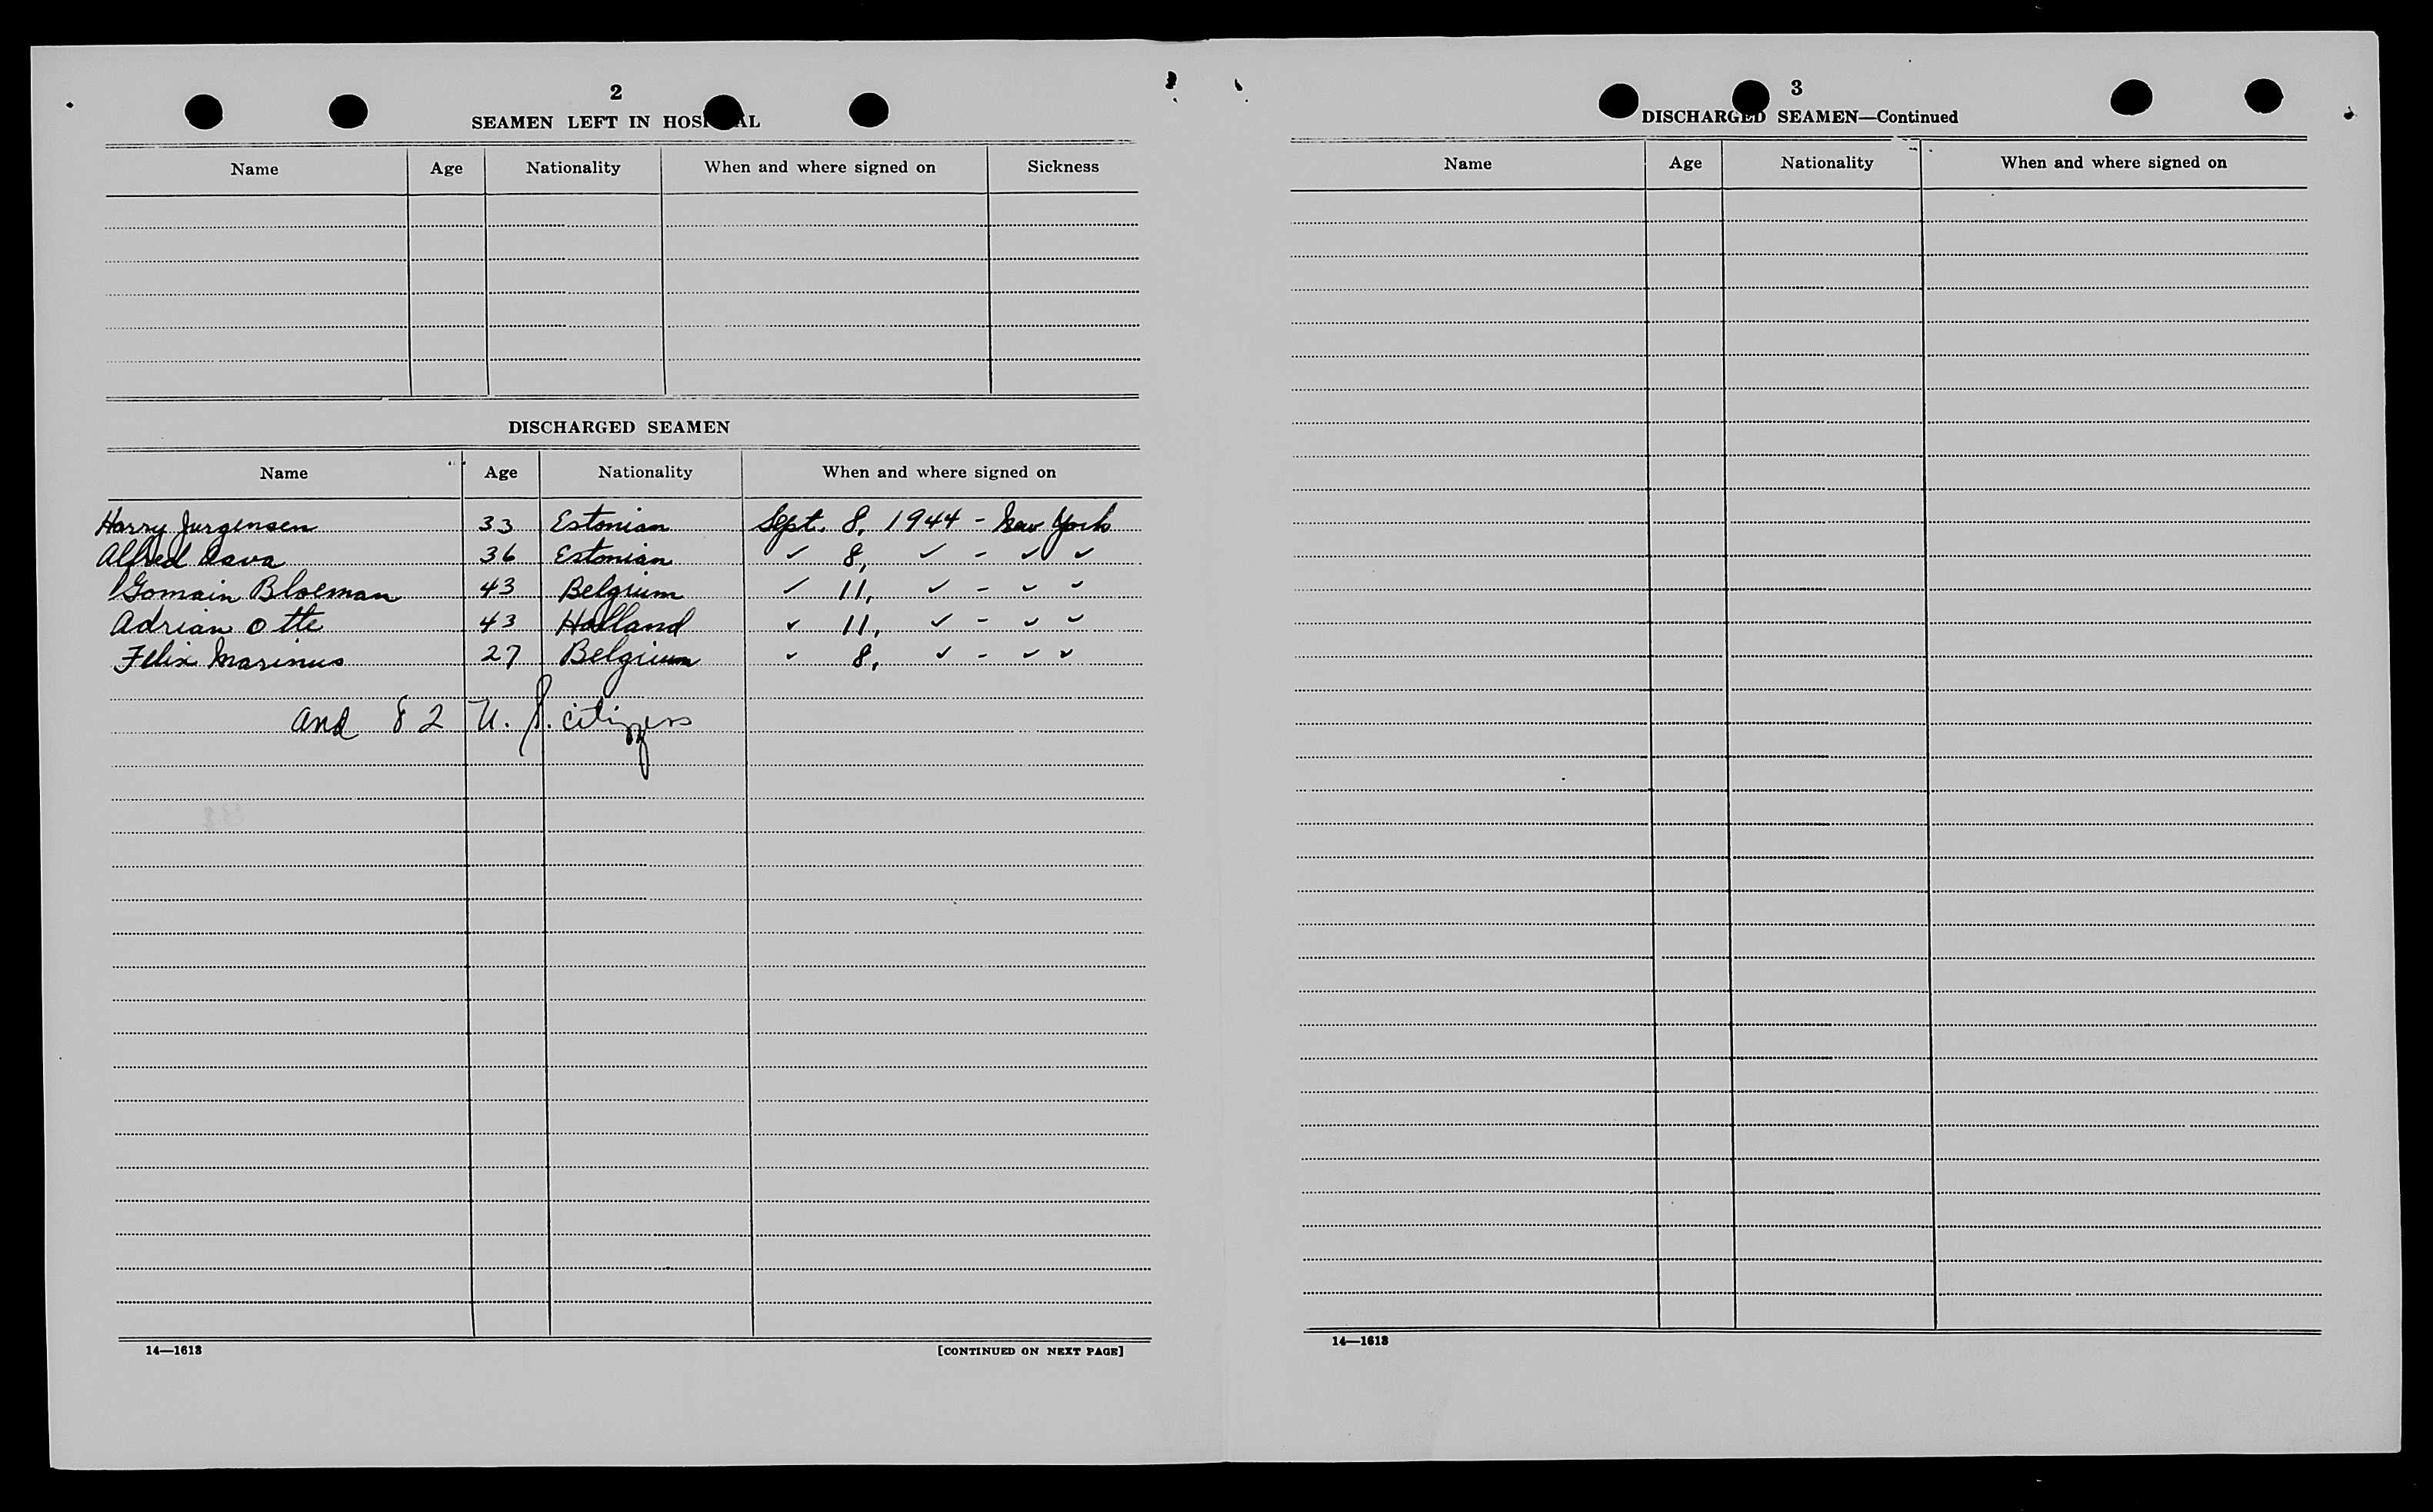 2
SEAMEN LEFT IN HOSPITAL
Name Age Nationality When and where signed on Sickness
DISCHARGED SEAMEN
Name Age Nationality When and where signed on
Harry Jurgensen 33 Estonian Sept. 8, 1944 - New York
Alfred 36 Estonian ✓ 8, ✓ - ✓ ✓
Bloeman 43 Belgium ✓ 11, ✓ - ✓ ✓
Adrian Otte 43 Holland ✓ 11, ✓ - ✓ ✓
Felix Marinus 27 Belgium ✓ 8, ✓ - ✓ ✓
and 82 U. S. citizens
14—1613
[CONTINUED ON NEXT PAGE]
3
DISCHARGED SEAMEN—Continued
Name Age Nationality When and where signed on
14—1613